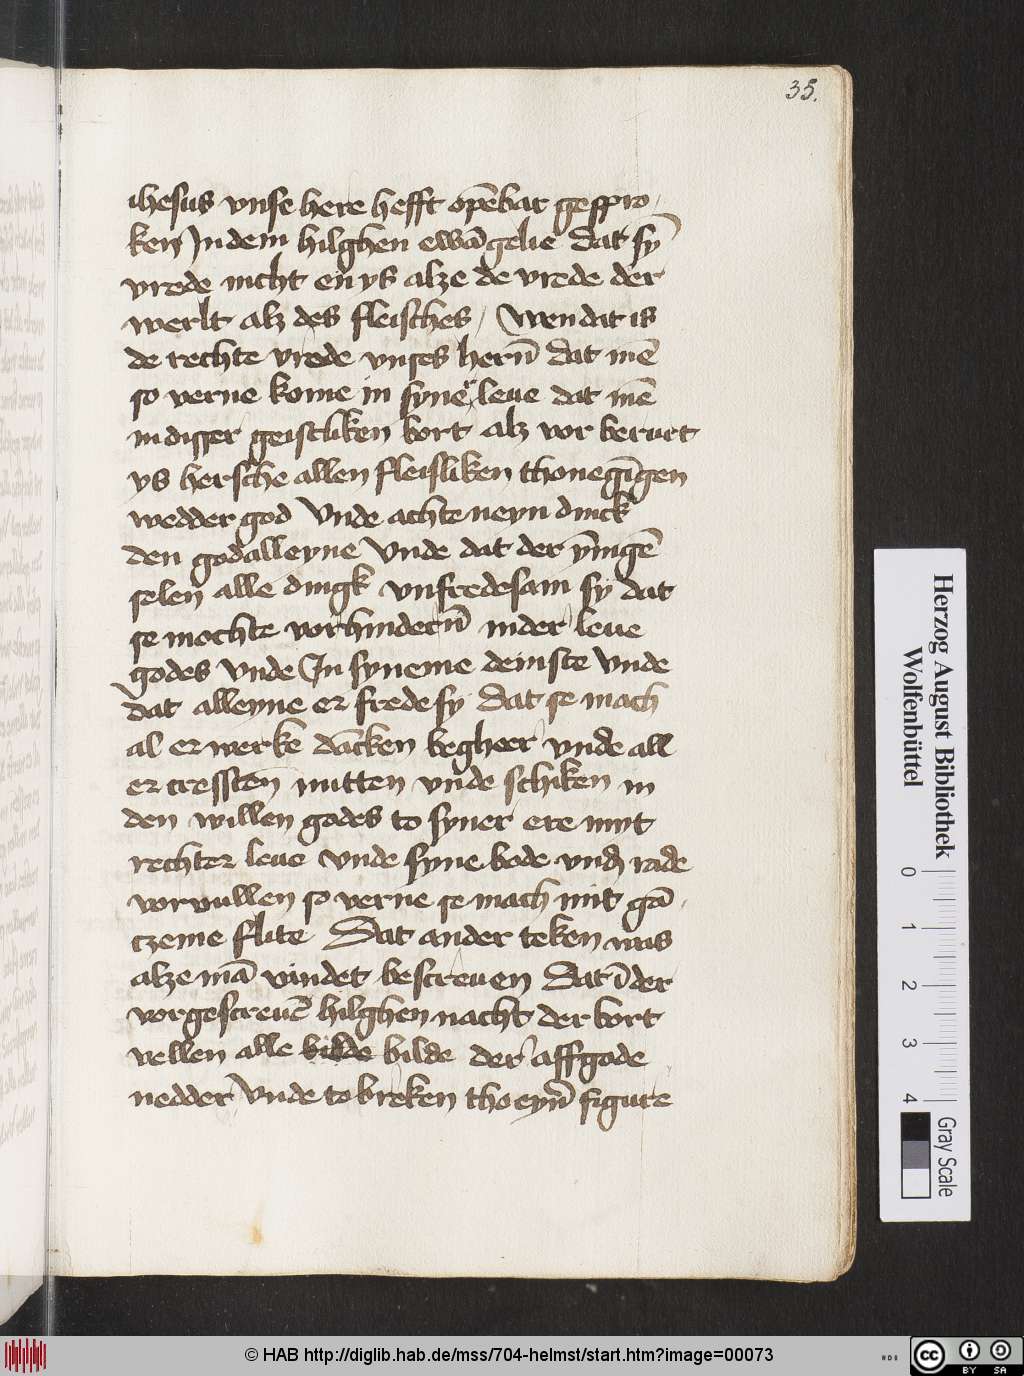 35.
ihesus vnse here hefft opēbar gespro
ken Jn dem hilghen ewāgelie dat sȳ
vrede nicht en ys alze de vrede der
werlt alz des fleisches / Wen dat is
de rechte vrede vnses hern̄ dat mē
so verne kome in syner leue dat mē
in disser geistliken bort alz vor berurt
ys hersche allen fleisliken thonegīgen
wedder god Vnde achte neyn dinck
den god alleyne Vnde dat der ȳnigē
selen alle dingk vnfredesam sy dat
se mochte vorhindern̄ in der leue
godes Vnde Jn syneme deinste Vnde
dat alleyne er frede sy Dat se mach
al er werke dācken begheer vnde all
er cressten nutten vnde schiken in
den willen godes to syner ere myt
rechter leue vnde syne bode vnd rade
vorvullen so verne se mach mit gā
czeme flite Dat ander teken was
alze mā vindet bescreuen Dat ī der
vorgescreuē hilghen nacht der bort
vellen alle bilde bilde der affgode
nedder Vnde to breken tho eyn̄ figure
Herzog August Bibliothek
Wolfenbüttel
0 1 2 3 4
Gray Scale
© HAB http://diglib.hab.de/mss/704-helmst/start.htm?image=00073
cc BY SA